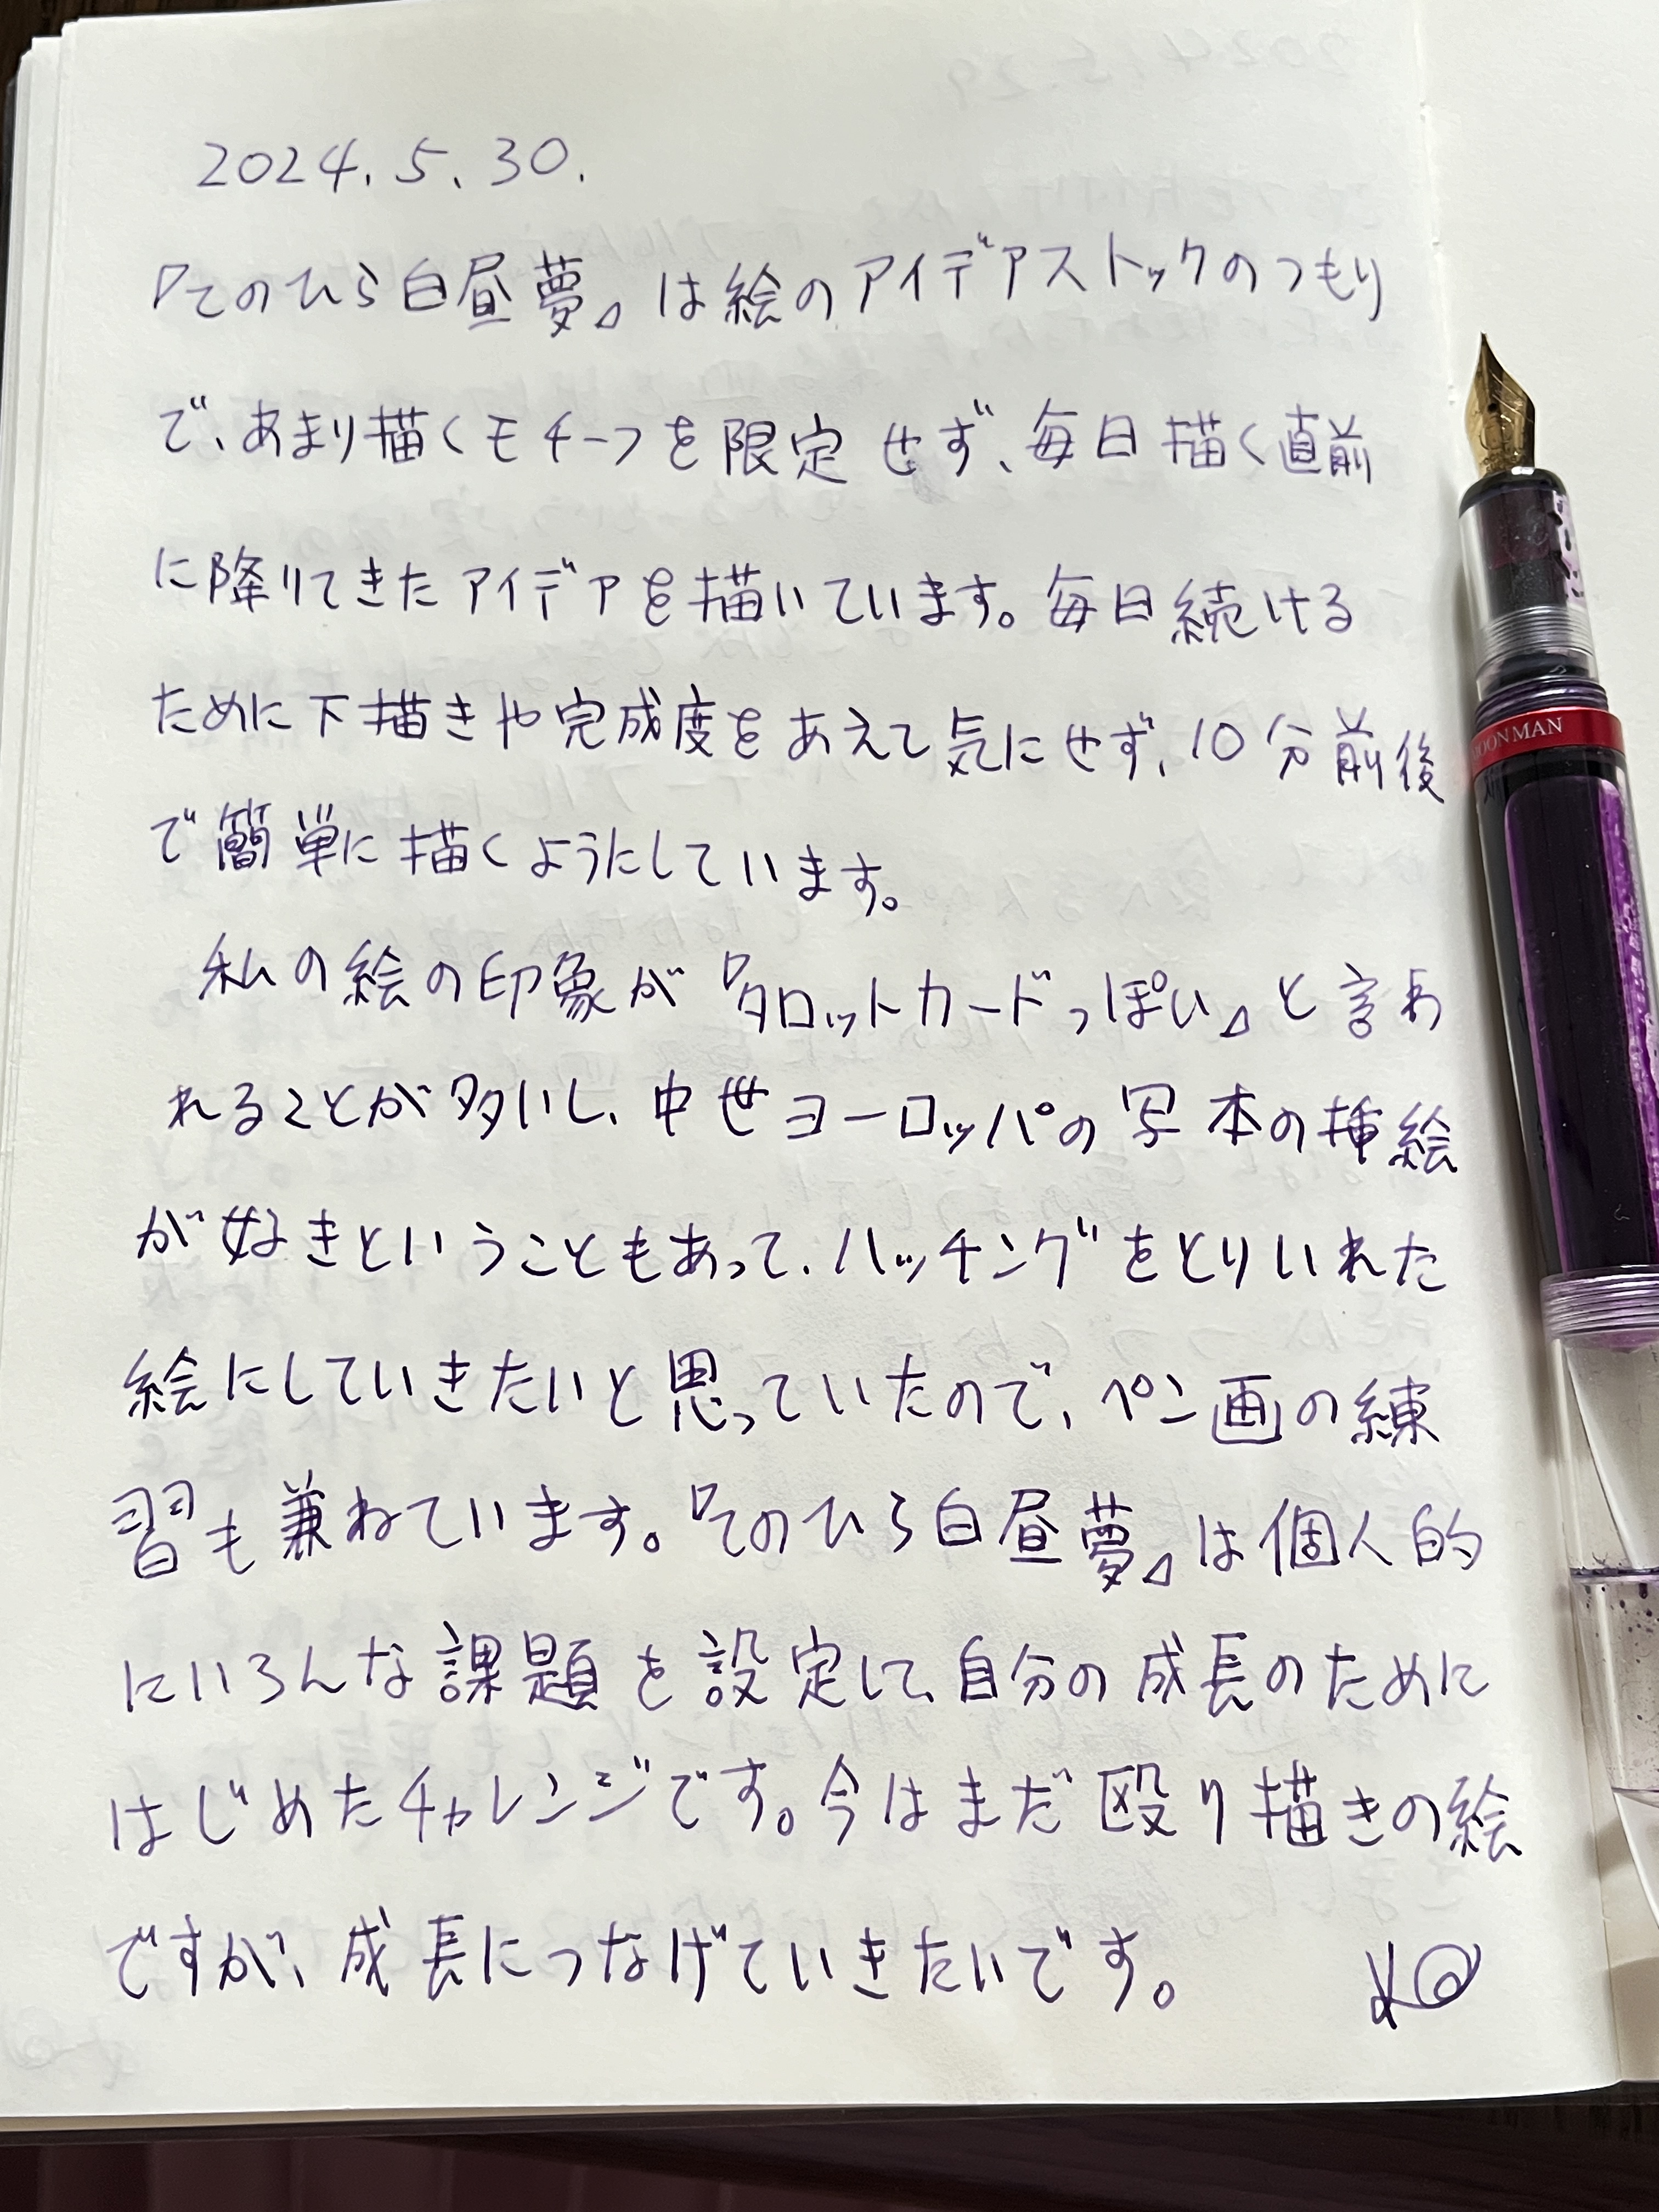 2024.5.30.
『てのひら白昼夢』は絵のアイデアストックのつもり
で、あまり描くモチーフを限定せず、毎日描く直前
に降りてきたアイデアを描いています。毎日続ける
ために下描きや完成度をあえて気にせず、10分前後
で簡単に描くようにしています。
私の絵の印象が『タロットカードっぽい』と言わ
れることが多いし、中世ヨーロッパの写本の挿絵
が好きということもあって、ハッチングをとりいれた
絵にしていきたいと思っていたので、ペン画の練
習も兼ねています。『てのひら白昼夢』は個人的
にいろんな課題を設定して、自分の成長のために
はじめたチャレンジです。今はまだ殴り描きの絵
ですが、成長につなげていきたいです。
MOONMAN
2024.5.29